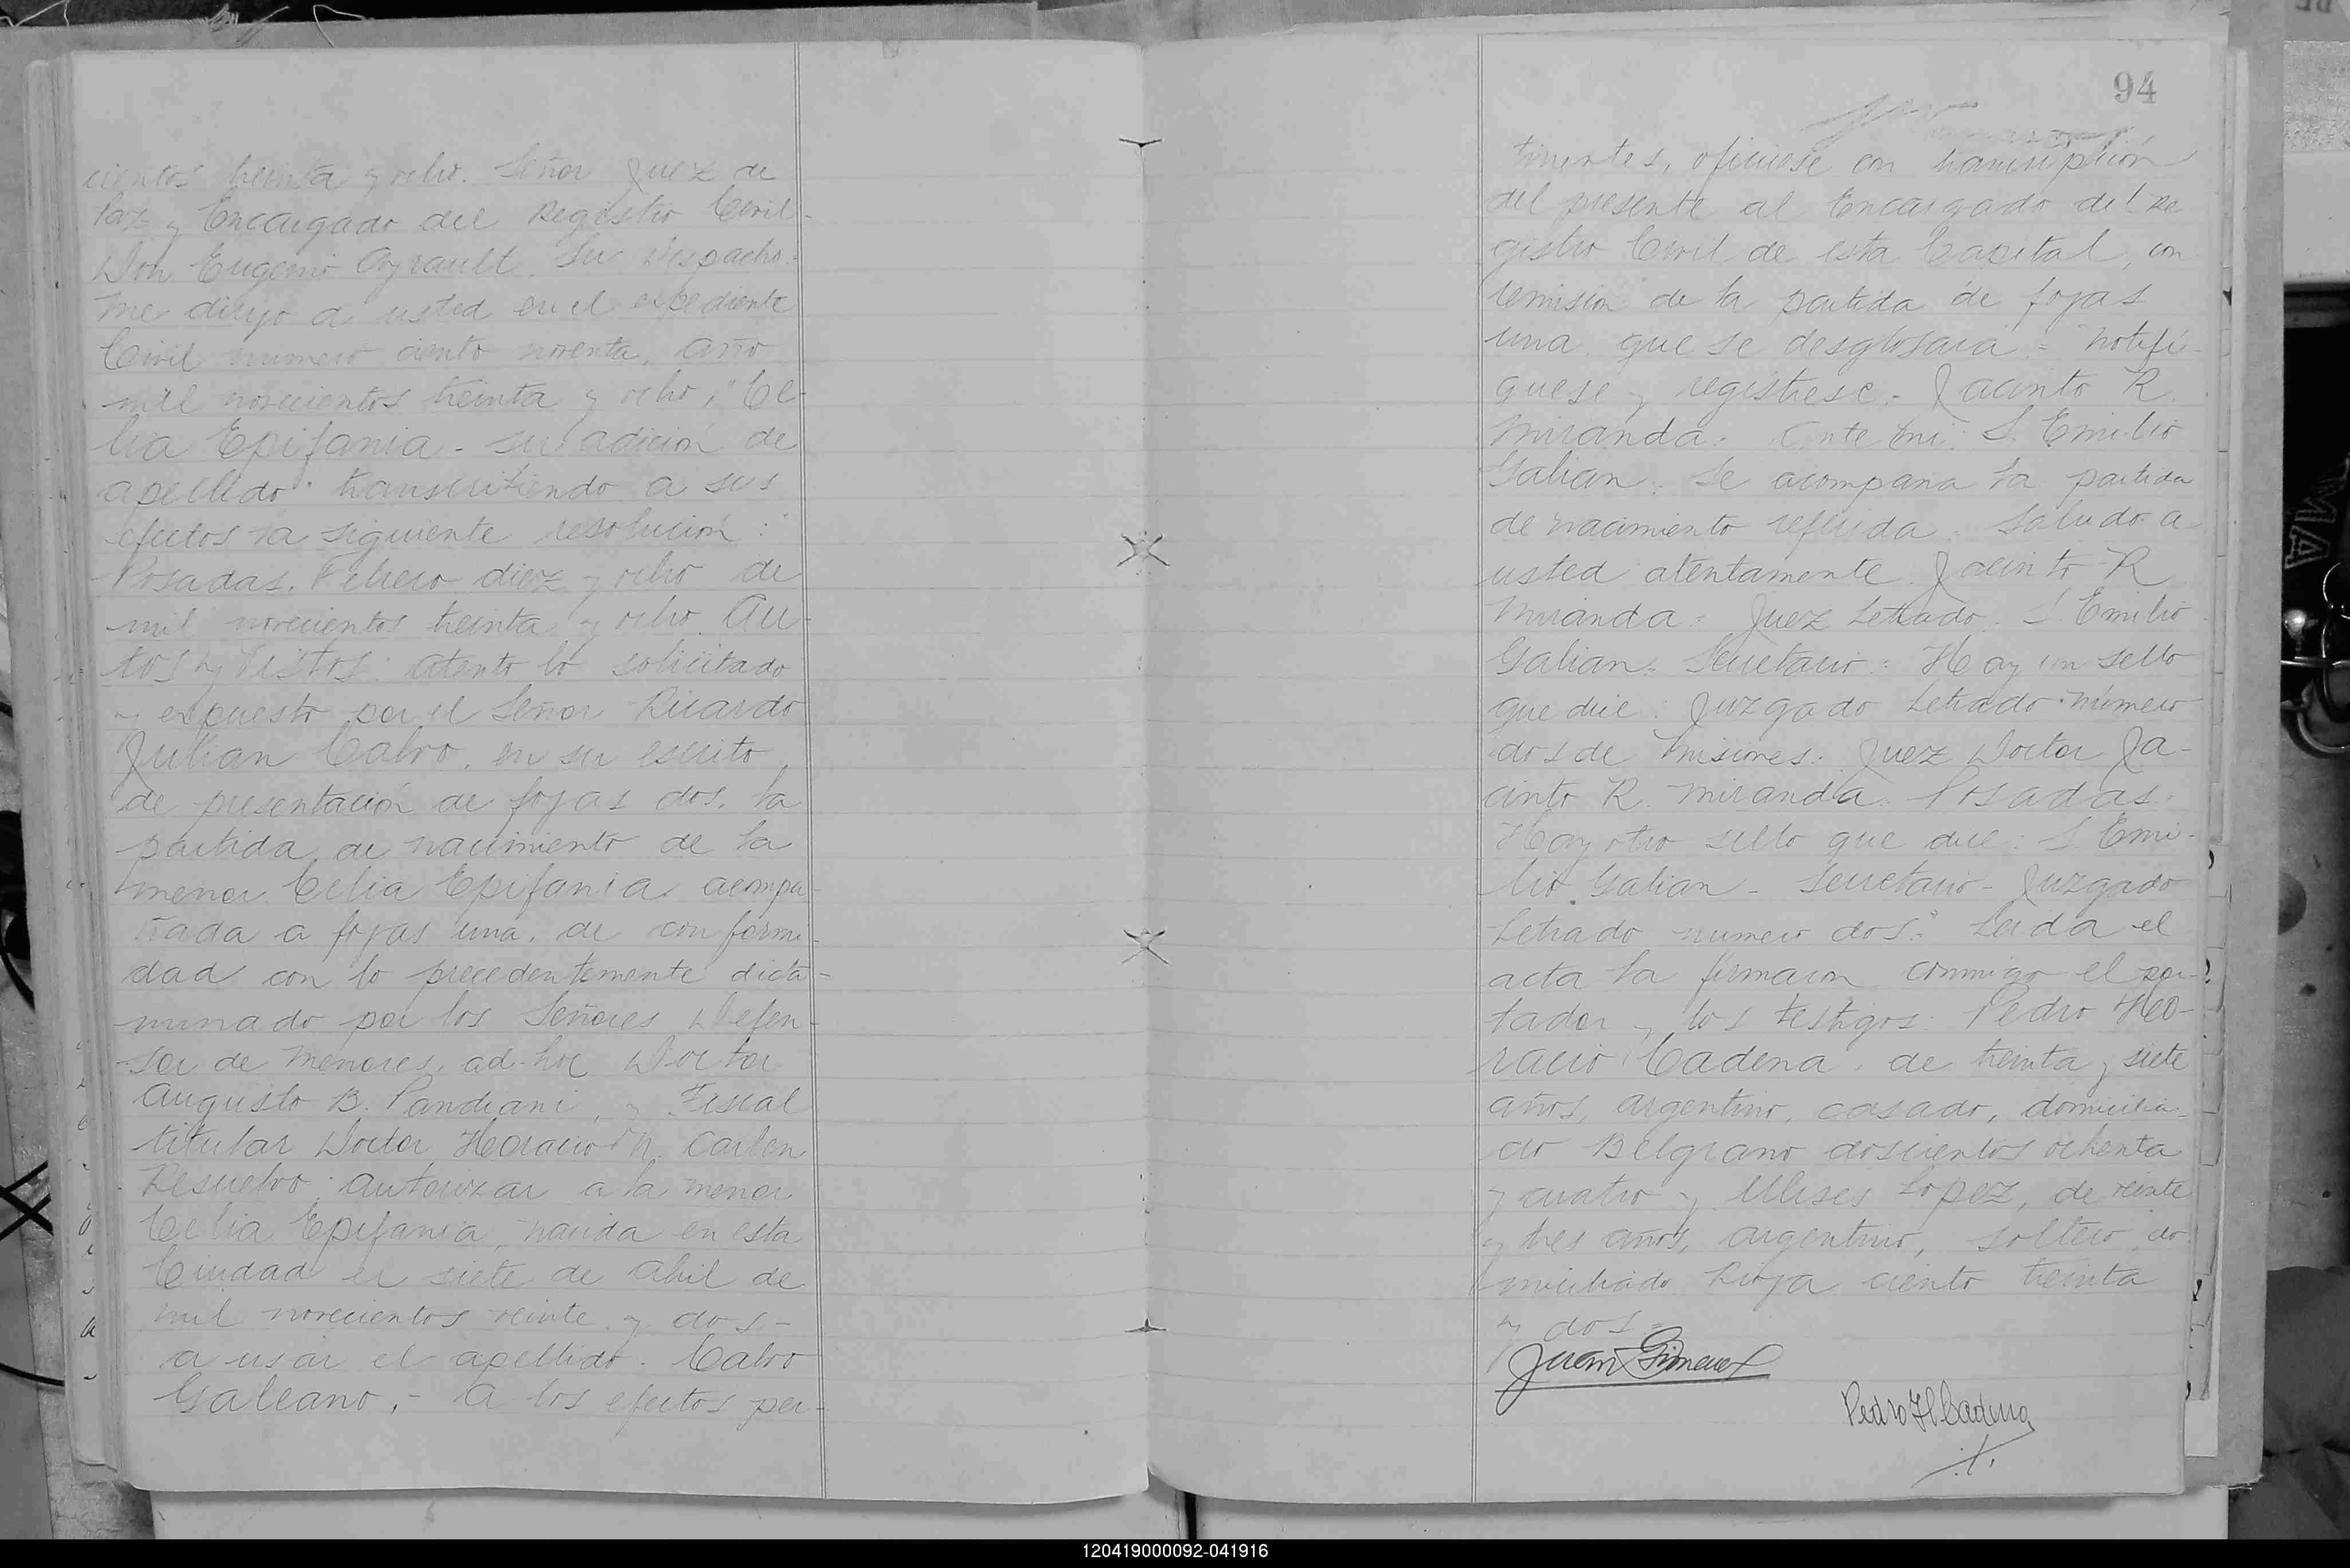 cientos treinta y ocho. Señor Juez de
Paz y Encargado del Registro Civil-
Don Eugenio Ayrault. Su Despacho.
Me dirijo a usted en el expediente
Civil numero ciento noventa, año
mil novecientos treinta y ocho, "Ce-
lia Epifania - su adición de
apellido" transcribiendo a sus
efectos la siguiente resolución: "
Posadas, Febrero diez y ocho de
mil novecientos treinta y ocho. Au-
tos y Vistos: atento lo solicitado
y expuesto por el Señor Ricardo
Julian Calvo, en su escrito
de presentación de fojas dos, la
partida de nacimiento de la
menor Celia Epifania acompa-
ñada a fojas una, de conformi-
dad con lo precedentemente dicta-
minado por los Señores Defen-
sor de Menores, ad-hoc Doctor
Augusto B. Pandiani, y Fiscal
titular Doctor Horacio N. Carlen
Resuelvo: autorizar a la menor
Celia Epifania, nacida en esta
Ciudad el siete de Abril de
mil novecientos veinte y dos-
a usar el apellido. Calvo
Galeano.- A los efectos per-
94
tinentes, oficiese con transcripción
del presente al Encargado del Re
gistro Civil de esta Capital, con
remision de la partida de fojas
una que se desglosara - notifi-
quese y registrese.- Jacinto R.
Miranda. Ante mi: S. Emilio
Galian. Se acompaña la partida
de nacimiento referida. Saludo a
usted atentamente. Jacinto R
Miranda. Juez Letrado. S. Emilio
Galian. Secretario. Hay un sello
que dice: Juzgado Letrado número
dos de Misiones. Juez Doctor Ja-
cinto R. Miranda. Posadas.
Hay otro sello que dice: S. Emi-
lio Galian - Secretario - Juzgado
Letrado numero dos." Leida el
acta la firmaron conmigo el por-
tador y los testigos: Pedro Ho-
racio Cadena, de treinta y siete
años, argentino, casado, domicilia-
do Belgrano doscientos ochenta
y cuatro y Ulises Lopez, de veinte
y tres años, argentino, soltero, do
miciliado Rioja ciento treinta
y dos=
Juan Gimenez
Pedro H Cadena
120419000092-041916